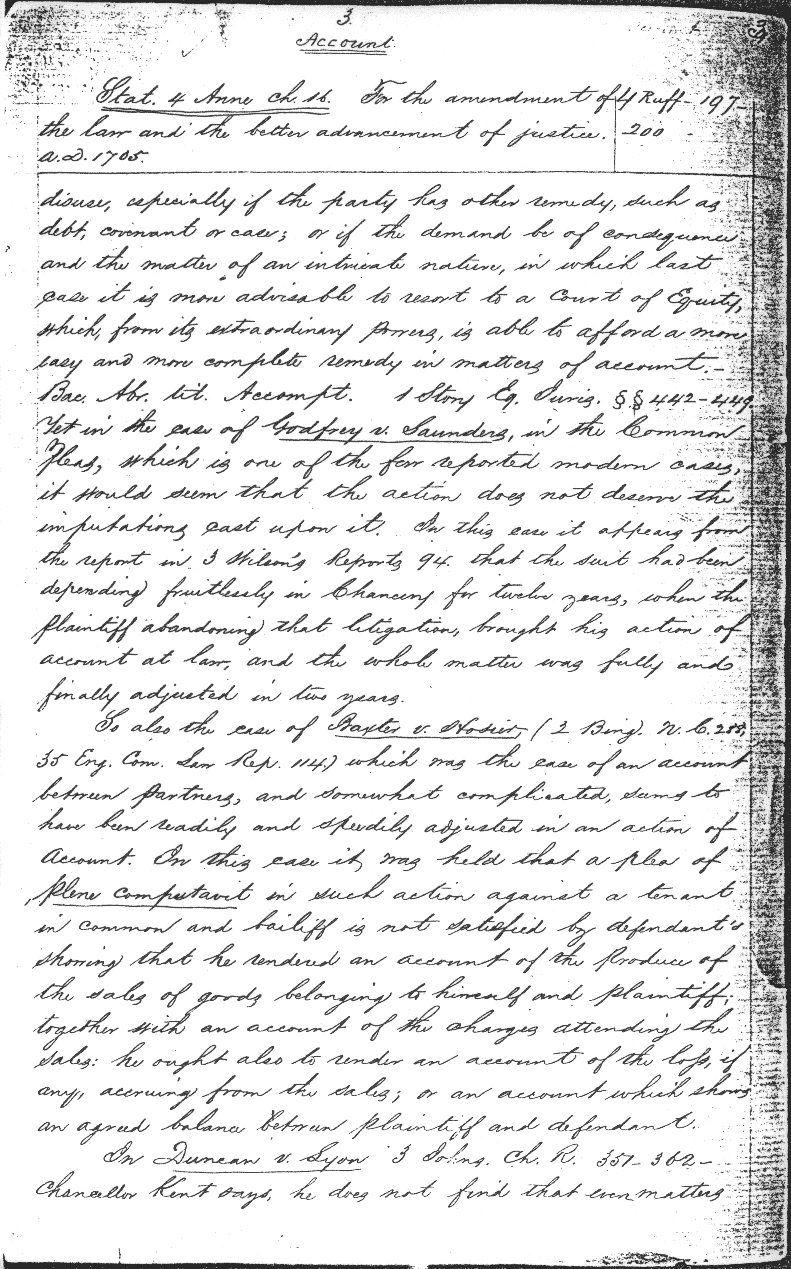 3.
Account.
Stat. 4 Anne ch. 16. For the amendment of 4 Ruff-197-
the law and the better advancement of justice. 200
A.D. 1705.
disuse, especially if the party has other remedy, such as
debt, covenant or case; or if the demand be of consequence
and the matter of an intricate nature, in which last
case it is more advisable to resort to a Court of Equity,
which, from its extraordinary powers, is able to afford a more
easy and more complete remedy in matters of account.-
Bac. Abr. tit. Accompt. 1 Story Eq. Juris. §§ 442-449.
Yet in the case of Godfrey v. Saunders, in the Common
Pleas, which is one of the few reported modern cases,
it would seem that the action does not deserve the
imputations cast upon it. In this case it appears from
the report in 3 Wilson's Reports 94. that the suit had been
depending fruitlessly in Chancery for twelve years, when the
plaintiff abandoning that litigation, brought his action of
account at law, and the whole matter was fully and
finally adjusted in two years.
So also the case of Baxter v. Hosier, (2 Bing. N. C. 288,
35 Eng. Com. Law Rep. 114.) which was the case of an account
between partners, and somewhat complicated, seems to
have been readily and speedily adjusted in an action of
Account. In this case it was held that a plea of
plene computavit in such action against a tenant
in common and bailiff is not satisfied by defendant's
showing that he rendered an account of the produce of
the sales of goods belonging to himself and plaintiff,
together with an account of the charges attending the
sales: he ought also to render an account of the loss, if
any, accruing from the sales; or an account which shows
an agreed balance between plaintiff and defendant.
In Duncan v. Lyon 3 Johns. Ch. R. 351-362-
Chancellor Kent says, he does not find that even matters